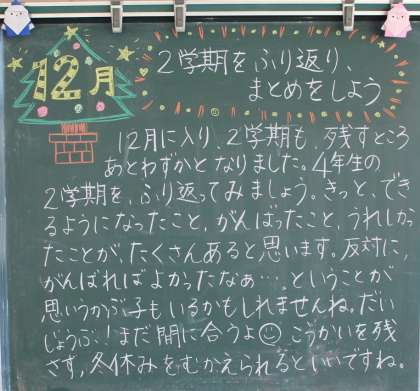 12月
2学期をふり返り、
まとめをしよう
12月に入り、2学期も、残すところ
あとわずかとなりました。4年生の
2学期を、ふり返ってみましょう。きっと、でき
るようになったこと、がんばったこと、うれしかっ
たことが、たくさんあると思います。反対に、
がんばればよかったなぁ…。ということが
思いうかぶ子もいるかもしれませんね。だい
じょうぶ！まだ間に合うよ☺こうかいを残
さず、冬休みをむかえられるといいですね。